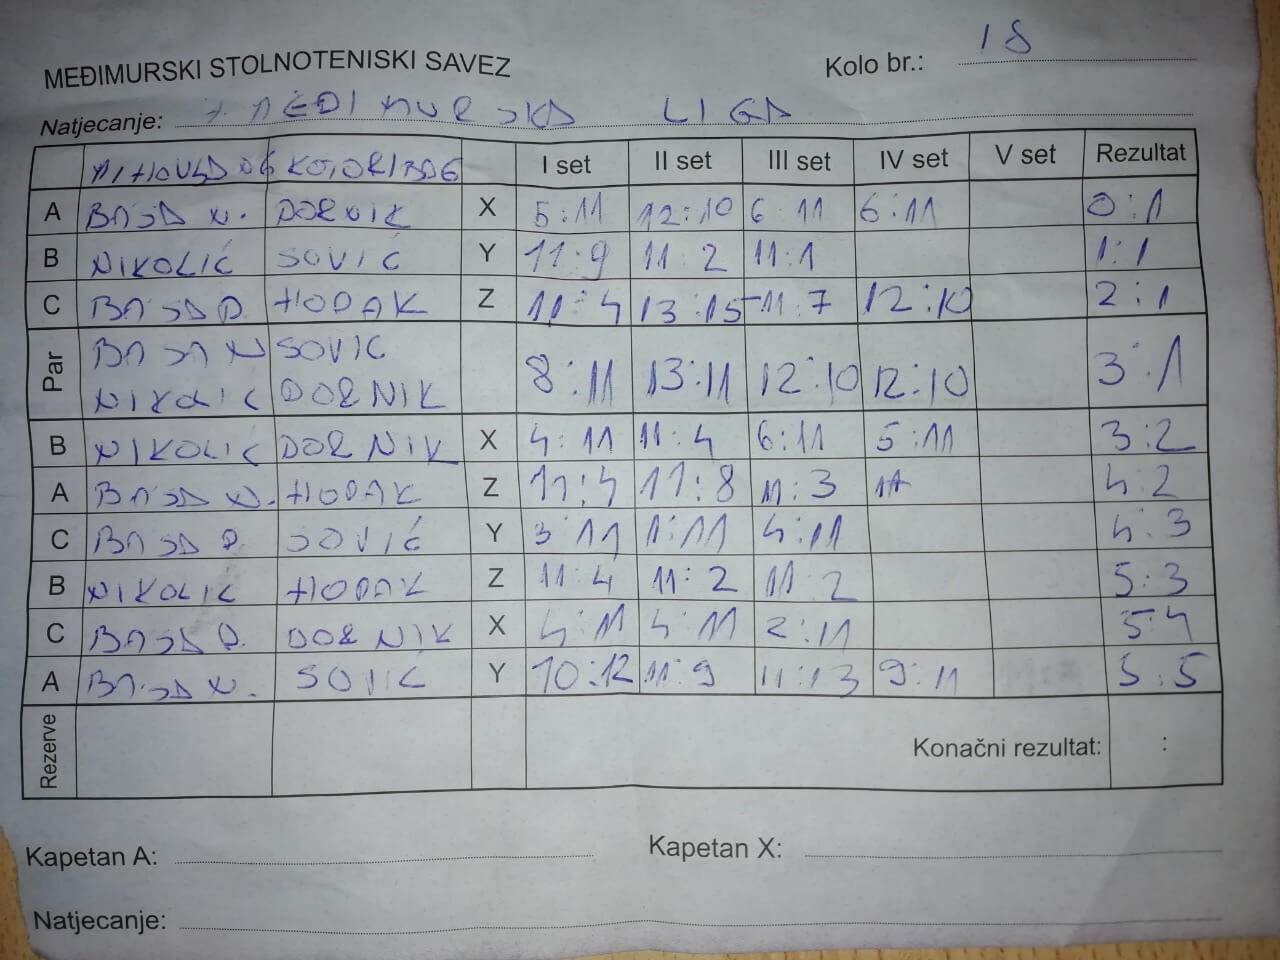 MEĐIMURSKI STOLNOTENISKI SAVEZ
Kolo br.: 18
Natjecanje: MEĐIMURSKA LIGA
KOTORIBA 6 I set II set III set IV set V set Rezultat
A BAJSA N. DORNIK X 5:11 12:10 6 11 6:11 0:1
B NIKOLIĆ SOVIĆ Y 11:9 11 2 11:1 1:1
C BAJSA D. HODAK Z 11:4 13:15 11:7 12:10 2:1
Par BAJSA N SOVIC 8:11 13:11 12:10 12:10 3:1
NIKOLIC DORNIK
B NIKOLIĆ DORNIK X 4:11 11:4 6:11 5:11 3:2
A BAJSA N. HODAK Z 11:4 11:8 11:3 4:2
C BAJSA D. SOVIĆ Y 3 11 1:11 4:11 4:3
B NIKOLIC HODAK Z 11:4 11:2 11 2 5:3
C BAJSA D. DORNIK X 4:11 4 11 2:11 5:4
A BAJSA N. SOVIC Y 10:12 11:9 11:13 9:11 5:5
Rezerve Konačni rezultat: :
Kapetan A: Kapetan X:
Natjecanje: